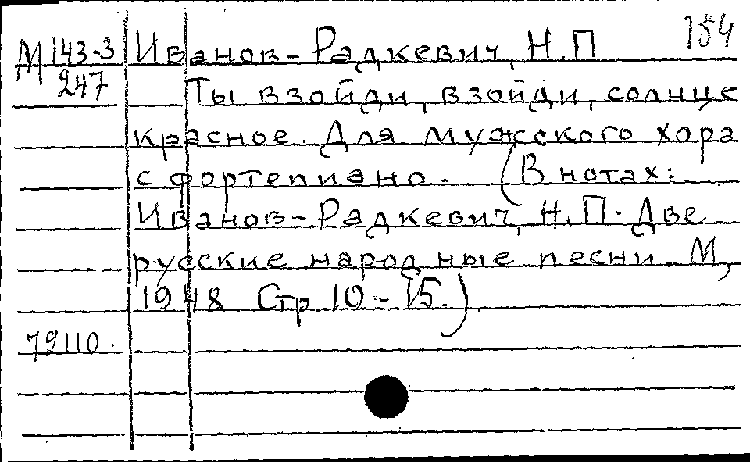 154
М 143-3 Иванов-Радкевич, Н.П
247 Ты взойди, взойди, солнце
красное. Для мужского хора
с фортепиано. (В нотах:
Иванов-Радкевич, Н.П. Две
русские народные песни М,
1948 Стр 10-15.)
79110.